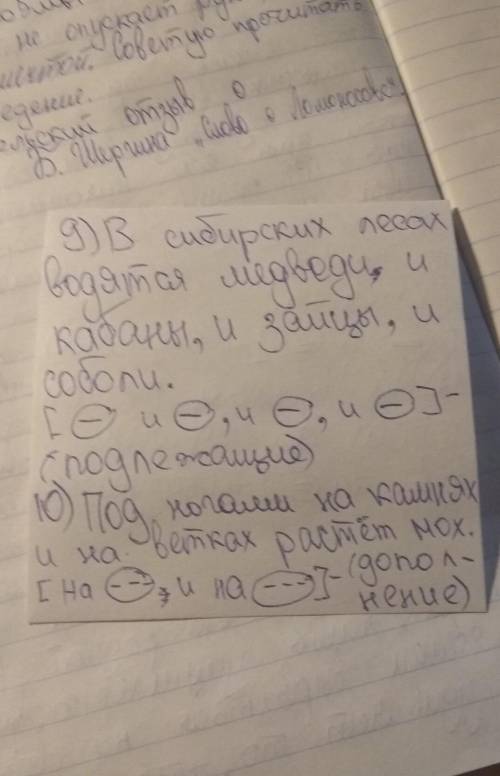 не опускает
Советую прочитать
отзыв о
Б. Шергина „Слово о Ломоносове".
9) В сибирских лесах
водятся медведи, и
кабаны, и зайцы, и
соболи.
[⊖ и ⊖, и ⊖, и ⊖]-
(подлежащие)
10) Под ногами на камнях
и на ветках растёт мох.
[на ⊖, и на ⊖]-(допол-
нение)